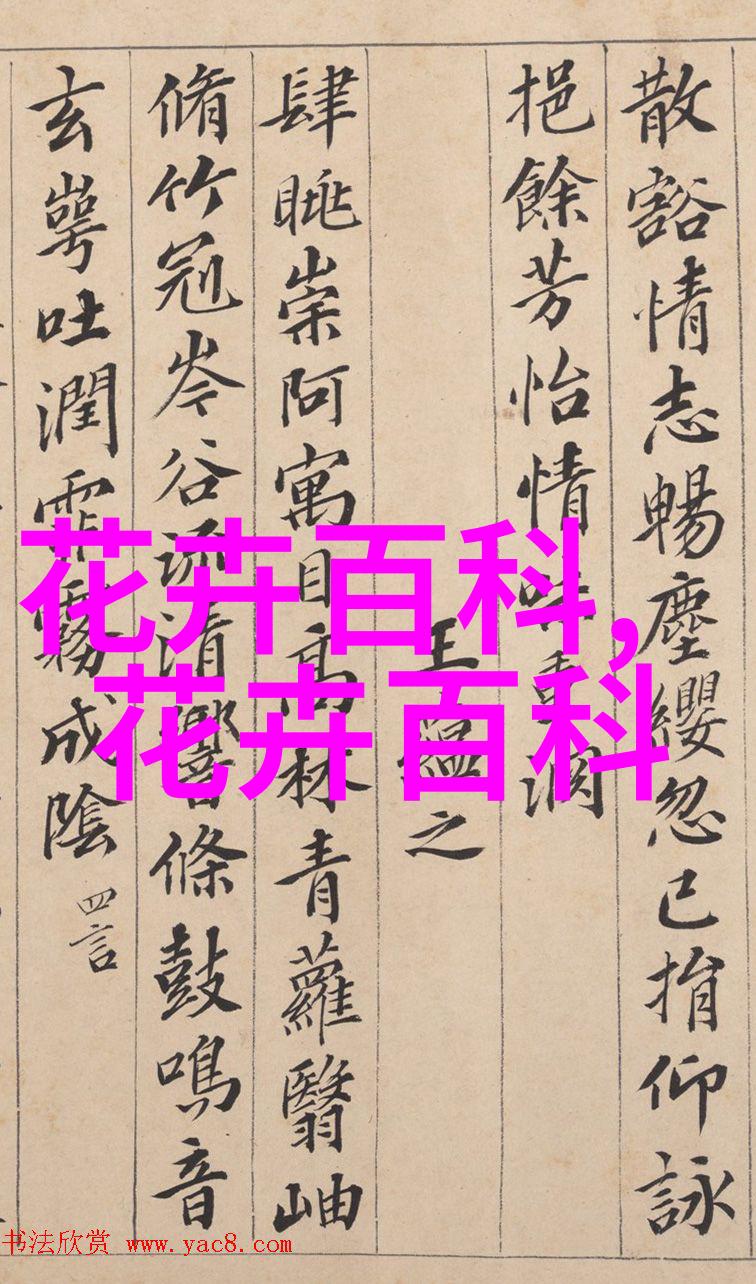 散豁情志暢塵纓忽已捐仰詠
挹餘芳怡情味重淵
王蘊之
肆眺崇阿寓目高林青蘿翳岫
脩竹冠岑谷流清響條鼓鳴音
玄崿吐潤霏霧成陰 四言
花卉百科,
花卉百科
书法欣赏 www.yac8.com